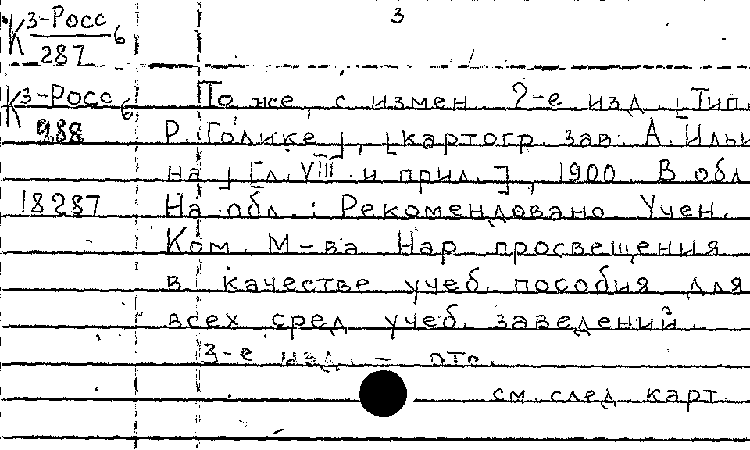 3
К 3-Росс 6
287
К 3-Росс 6
988
То же, с измен. 2-е изд. [Тип.
Р. Голике], [картогр. зав. А. Ильи
на] [гл. VIII и прил.], 1900. В обл.
18287
На обл.: Рекомендовано Учен.
Ком. М-ва Нар. просвещения
в качестве учеб. пособия для
всех сред. учеб. заведений.
3-е изд. – отс.
см. след. карт.